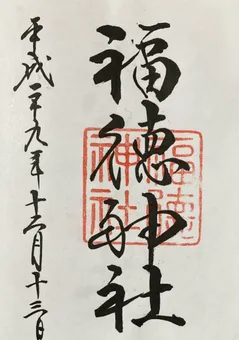 福徳神社
平成二九年十二月十三日
福徳
神社